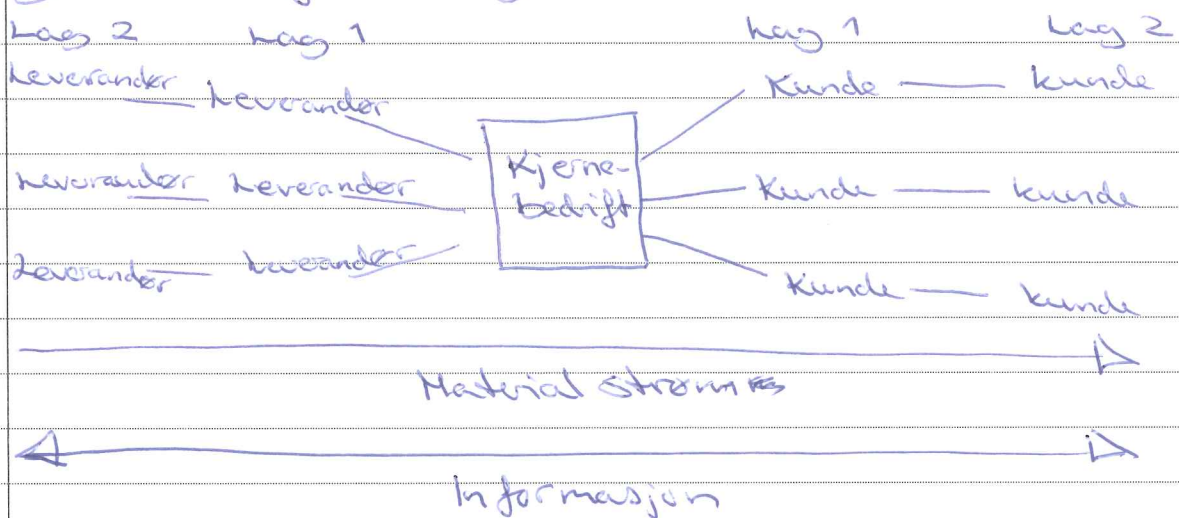 Lag 2 Lag 1 Lag 1 Lag 2
Leverandør Leverandør Kunde kunde
Leverandør Leverandør Kjerne-bedrift Kunde kunde
Leverandør Leverandør Kunde kunde
Material strøm
Informasjon